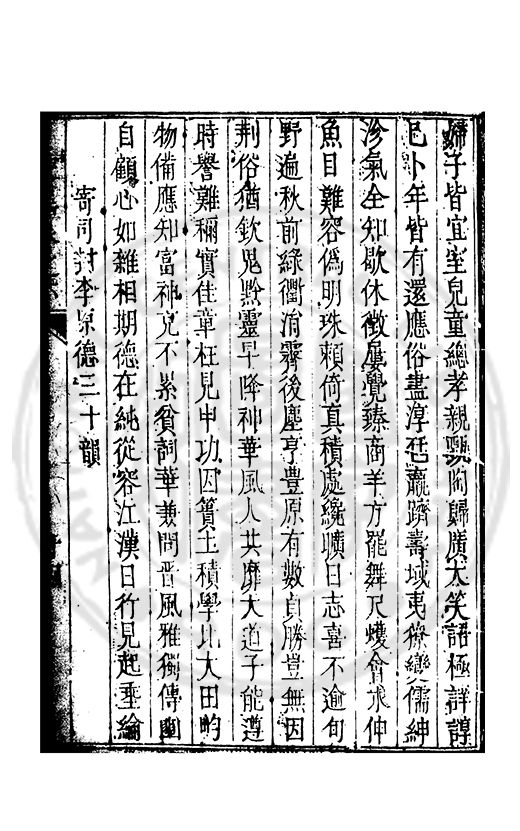 婦子皆宜室兒童總孝親甄陶歸廣大笑語極諄諄
已卜年皆有還應俗盡淳尫羸躋壽域夷獠變儒紳
沴氣全知歇休徵屢覺臻商羊方罷舞尺蠖會求伸
魚目難容偽明珠賴倚真積處纔曠日志喜不逾旬
野遍秋前綠衢消霽後塵亨豊原有數貞勝豈無因
荆俗猶欽鬼黔靈早降神華風人共靡大道子能遵
時譽難稱實佳章枉見申功因簣土積學比大田畇
物備應知富神克不累貧詞華兼問晋風雅獨傳豳
自顧心如雜相期德在純從容江漢日行見起垂綸
寄同對李原德二十韻